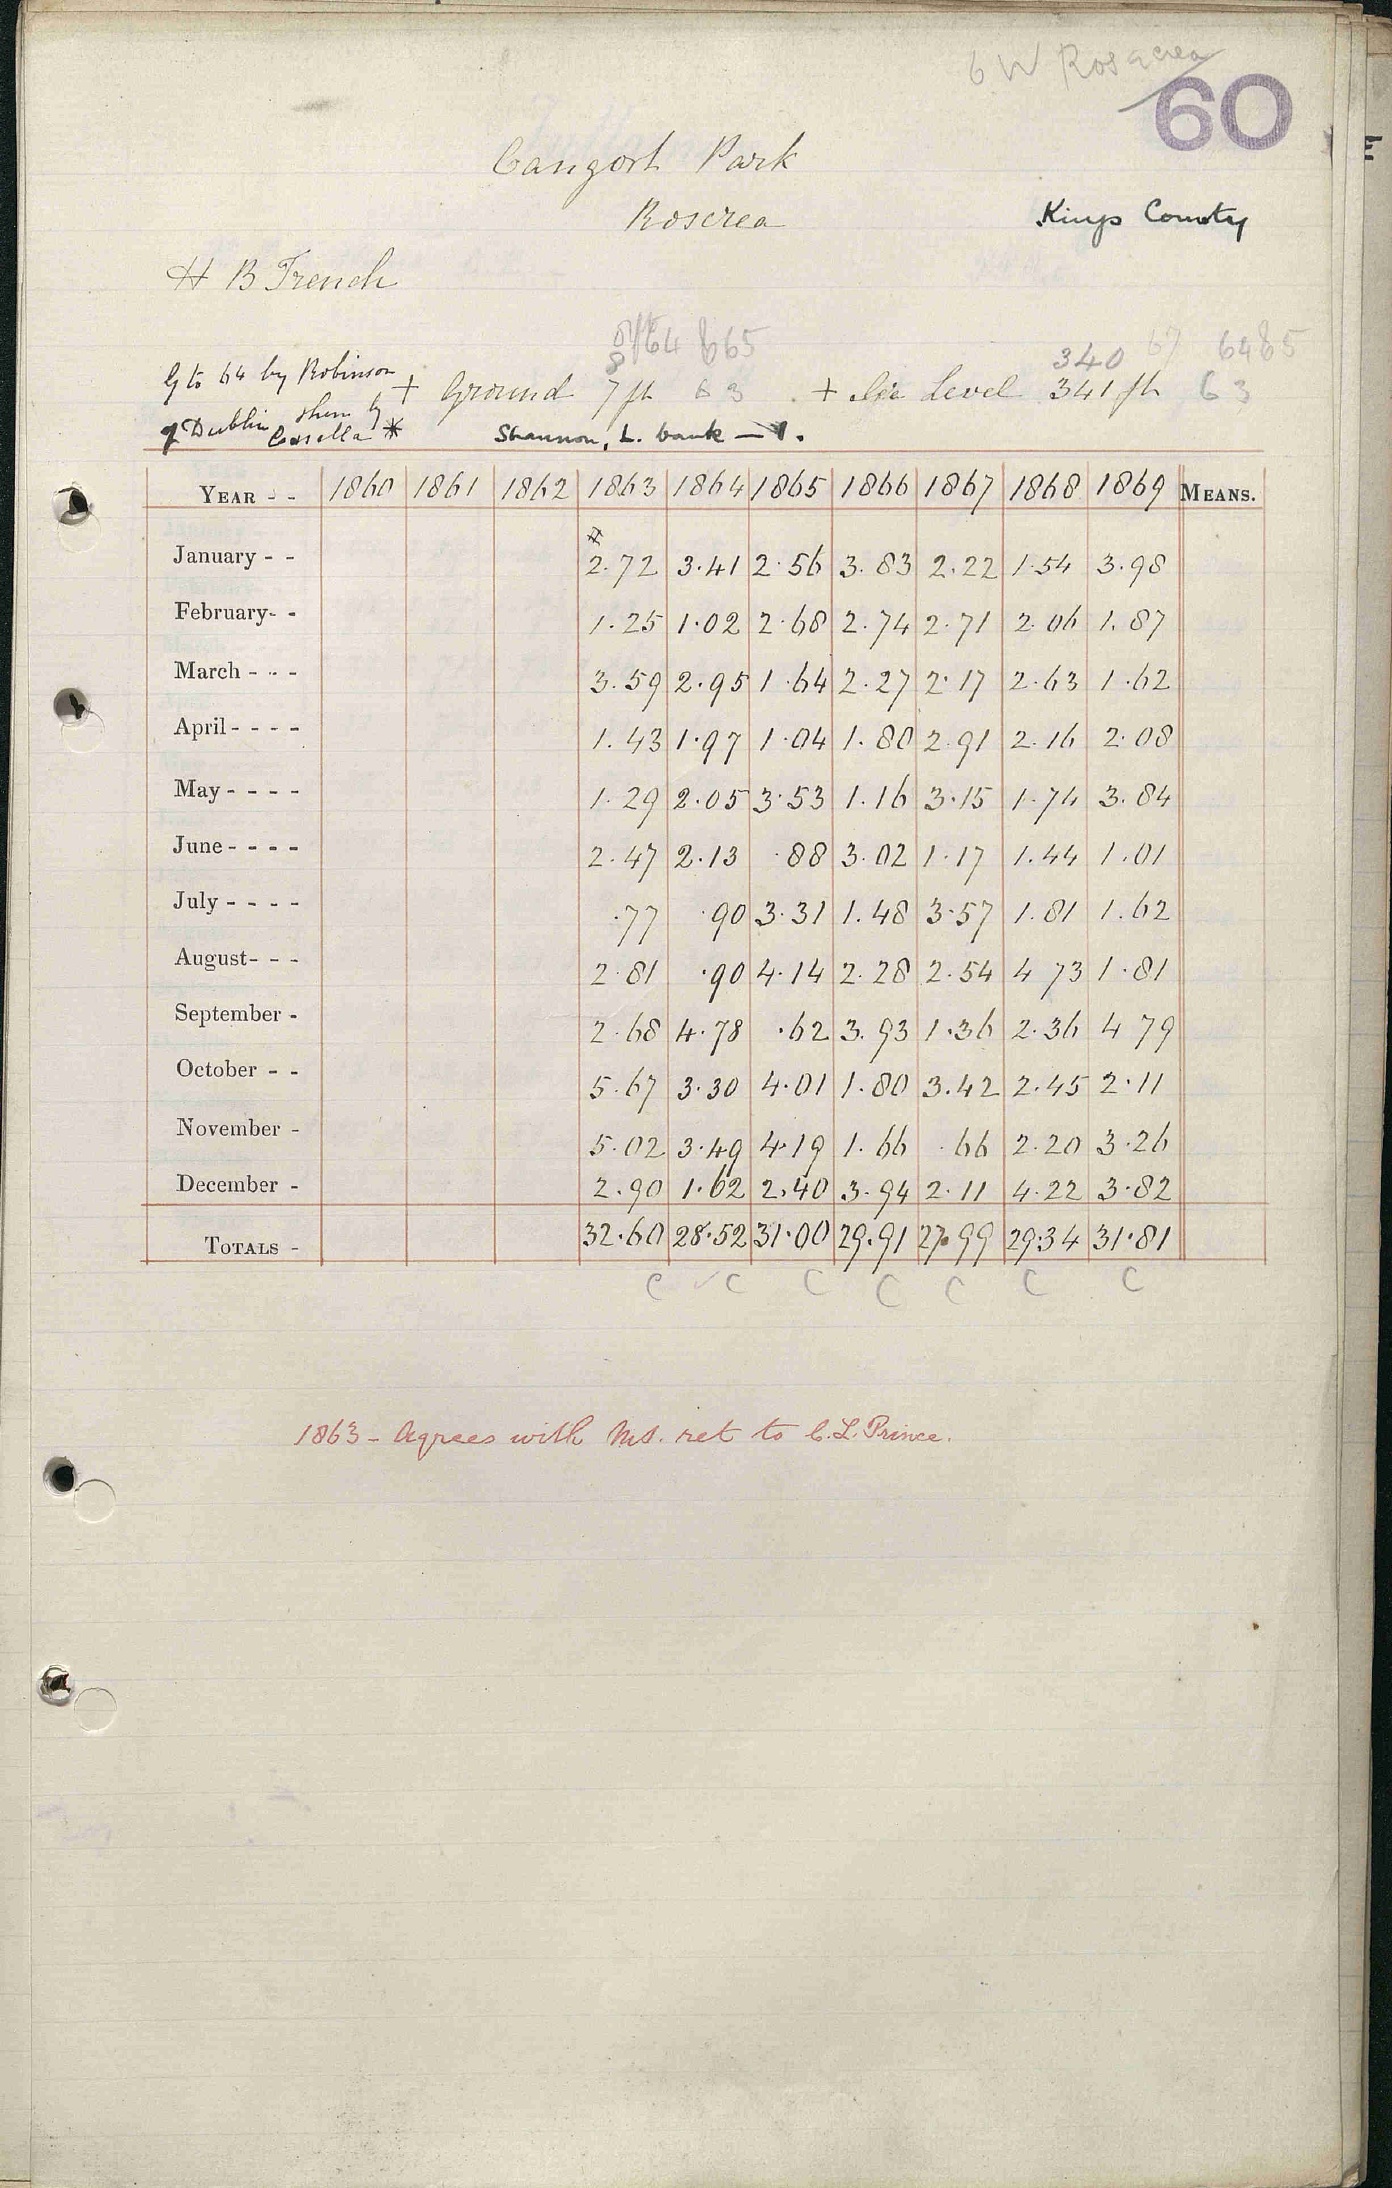 6 W Roscrea
60
Cangort Park
Roscrea
Kings County
H B Trench
64 65
340 67 64 65
G to 64 by Robinson
of Dublin then by
Casella *
+ Ground 7 ft 63 + Sea Level 341 ft 63
Shannon, L. bank — 1.
YEAR - - 1860 1861 1862 1863 1864 1865 1866 1867 1868 1869 MEANS.
January - - * 2.72 3.41 2.56 3.83 2.22 1.54 3.98
February- - 1.25 1.02 2.68 2.74 2.71 2.06 1.87
March - - - 3.59 2.95 1.64 2.27 2.17 2.63 1.62
April - - - - 1.43 1.97 1.04 1.80 2.91 2.16 2.08
May - - - - 1.29 2.05 3.53 1.16 3.15 1.74 3.84
June - - - - 2.47 2.13 .88 3.02 1.17 1.44 1.01
July - - - - .77 .90 3.31 1.48 3.57 1.81 1.62
August- - - 2.81 .90 4.14 2.28 2.54 4 73 1.81
September - 2.68 4.78 .62 3.93 1.36 2.36 4 79
October - - 5.67 3.30 4.01 1.80 3.42 2.45 2.11
November - 5.02 3.49 4.19 1.66 .66 2.20 3.26
December - 2.90 1.62 2.40 3.94 2.11 4.22 3.82
TOTALS - 32.60 28.52 31.00 29.91 27.99 29.34 31.81
C ✓C C C C C C
1863 - Agrees with MS. ret to C.L. Prince.